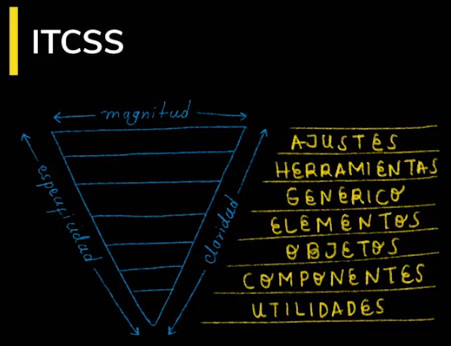 ITCSS
magnitud
especificidad
claridad
AJUSTES
HERRAMIENTAS
GENERICO
ELEMENTOS
OBJETOS
COMPONENTES
UTILIDADES